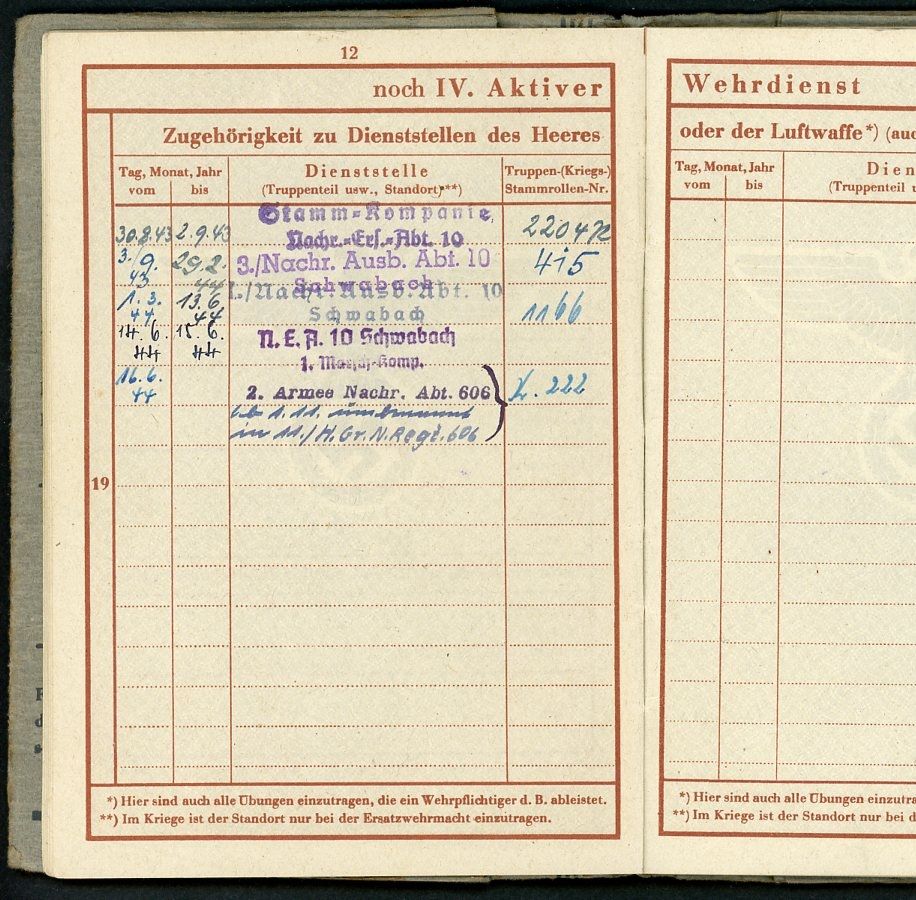 12
noch IV. Aktiver
Zugehörigkeit zu Dienststellen des Heeres
Tag, Monat, Jahr
vom bis
Dienststelle
(Truppenteil usw., Standort) **)
Truppen-(Kriegs-)
Stammrollen-Nr.
30.8.43 2.9.43 Stamm-Kompanie
Nachr.-Ers.-Abt. 10
3./9. 43 29.2. 44 3./Nachr. Ausb. Abt. 10 415
Schwabach
1.3. 44 13.6. 44 1./Nachr. Ausb. Abt. 10
Schwabach 1166
14.6. 44 15.6. 44 N. E. A. 10 Schwabach
1. Marsch-Komp.
16.6. 44 2. Armee Nachr. Abt. 606 222
1.11. umbenannt
in 11./H.Gr.N.Regt. 606
19
*) Hier sind auch alle Übungen einzutragen, die ein Wehrpflichtiger d. B. ableistet.
**) Im Kriege ist der Standort nur bei der Ersatzwehrmacht einzutragen.
Wehrdienst
oder der Luftwaffe*) (auc
Tag, Monat, Jahr
vom bis
Dien
(Truppenteil u
*) Hier sind auch alle Übungen einzutra
**) Im Kriege ist der Standort nur bei d